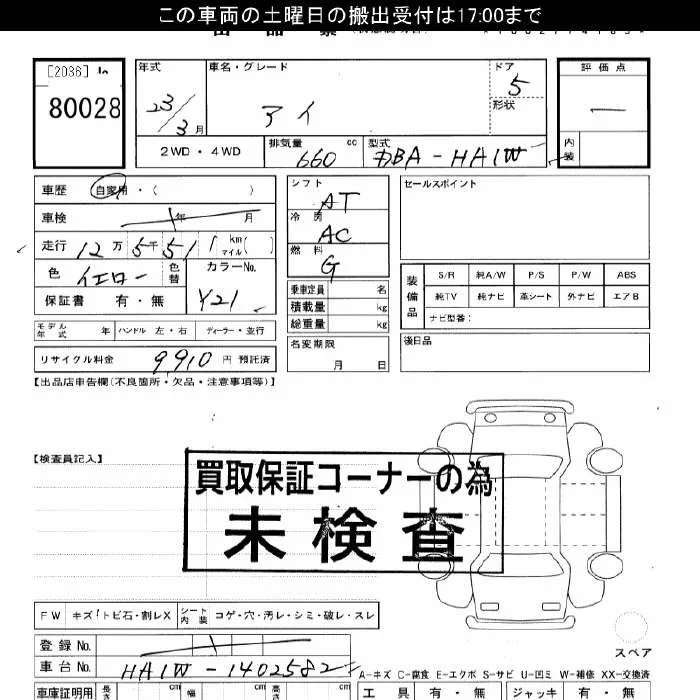 この車両の土曜日の搬出受付は17:00まで
[2036]
80028
年式 車名・グレード ドア 評価点
23/3月 アイ 5
形状
2WD・4WD 排気量 660 cc 型式 DBA-HA1W 内装
車歴 自家用・( )
車検 年 月
走行 12万 5千 51 km マイル( )
色 イエロー 色替 カラーNo. Y21
保証書 有・無
シフト AT
冷房 AC
燃料 G
乗車定員 名
積載量 kg
総重量 kg
セールスポイント
装備品 S/R 純A/W P/S P/W ABS
純TV 純ナビ 革シート 外ナビ エアB
ナビ型番:
モデル年式 年 ハンドル 左・右 ディーラー・並行
名変期限 月 日
後日品
リサイクル料金 9910 円 預託済
【出品店申告欄(不良箇所・欠品・注意事項等)】
【検査員記入】
買取保証コーナーの為
未検査
FW キズ・トビ石・割レX シート内装 コゲ・穴・汚レ・シミ・破レ・スレ
スペア
登録 No.
車台 No. HA1W-1402582
A-キズ C-腐食 E-エクボ S-サビ U-凹ミ W-補修 XX-交換済
車庫証明用 長さ cm 幅 cm 高さ cm 工具 有・無 ジャッキ 有・無